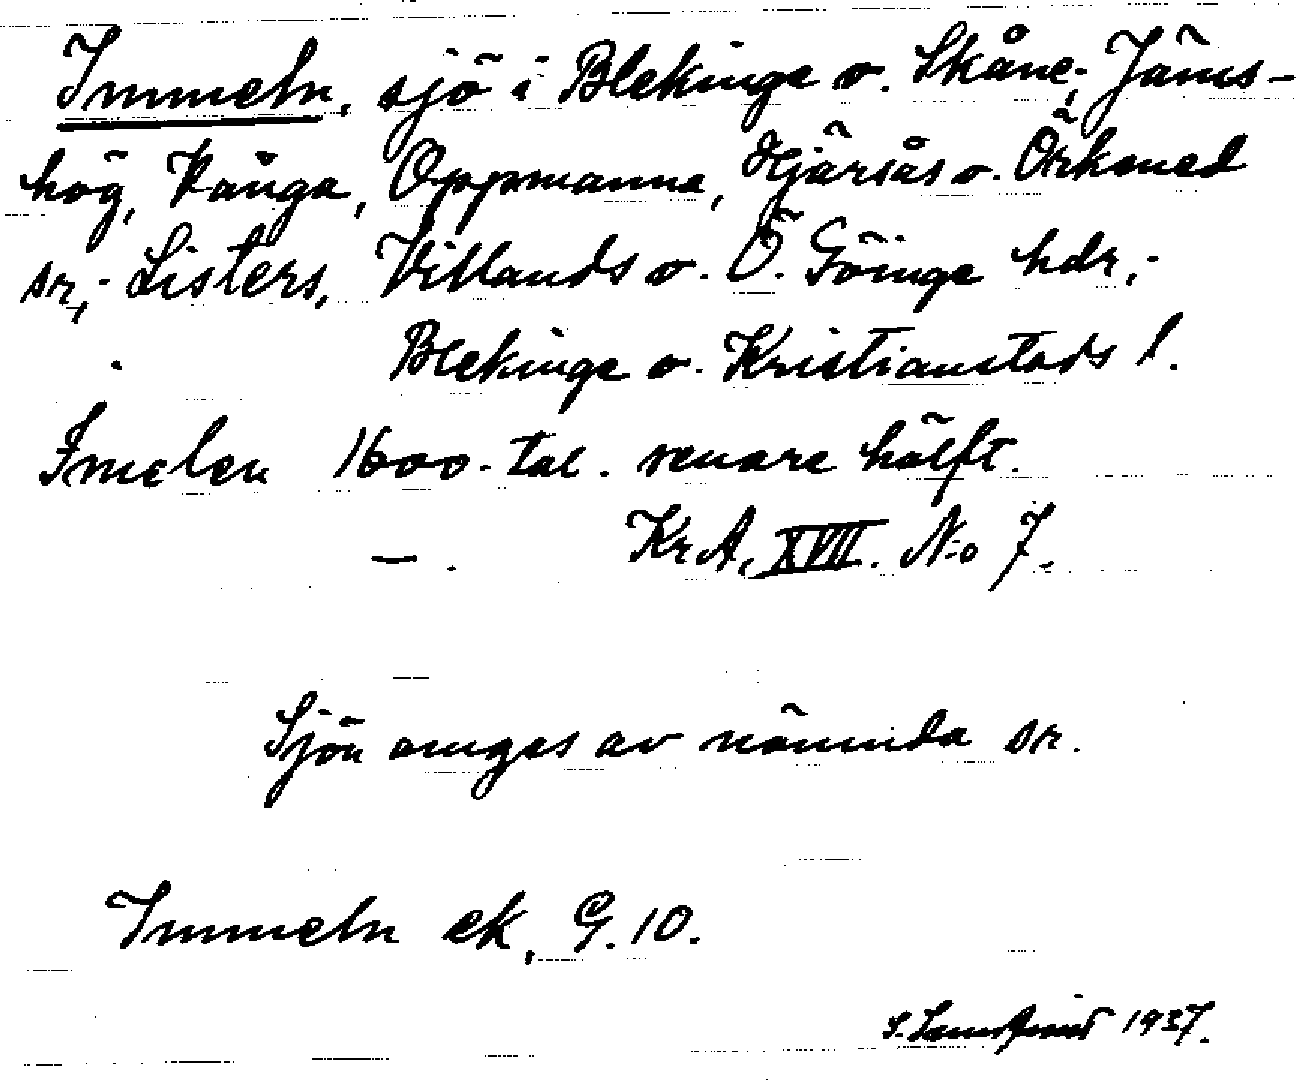 Immeln, sjö i Blekinge o. Skåne; Jäms-
hög, Kånga, Oppmanna, Hjärsås o. Örkened
sr,- Listers, Villands o. Ö. Göinge hdr,-
Blekinge o. Kristianstads l.
Imelen 1600-tal. senare hälft.
— . KrA, XVII. No 7.
Sjön omges av nämnda sr.
Immeln ek, G. 10.
S. 1937.